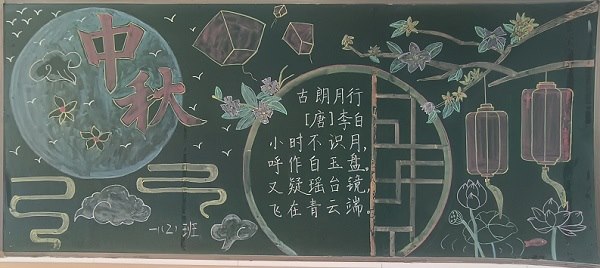 中秋
古朗月行
[唐]李白
小时不识月,
呼作白玉盘。
又疑瑶台镜,
飞在青云端。
一(2)班